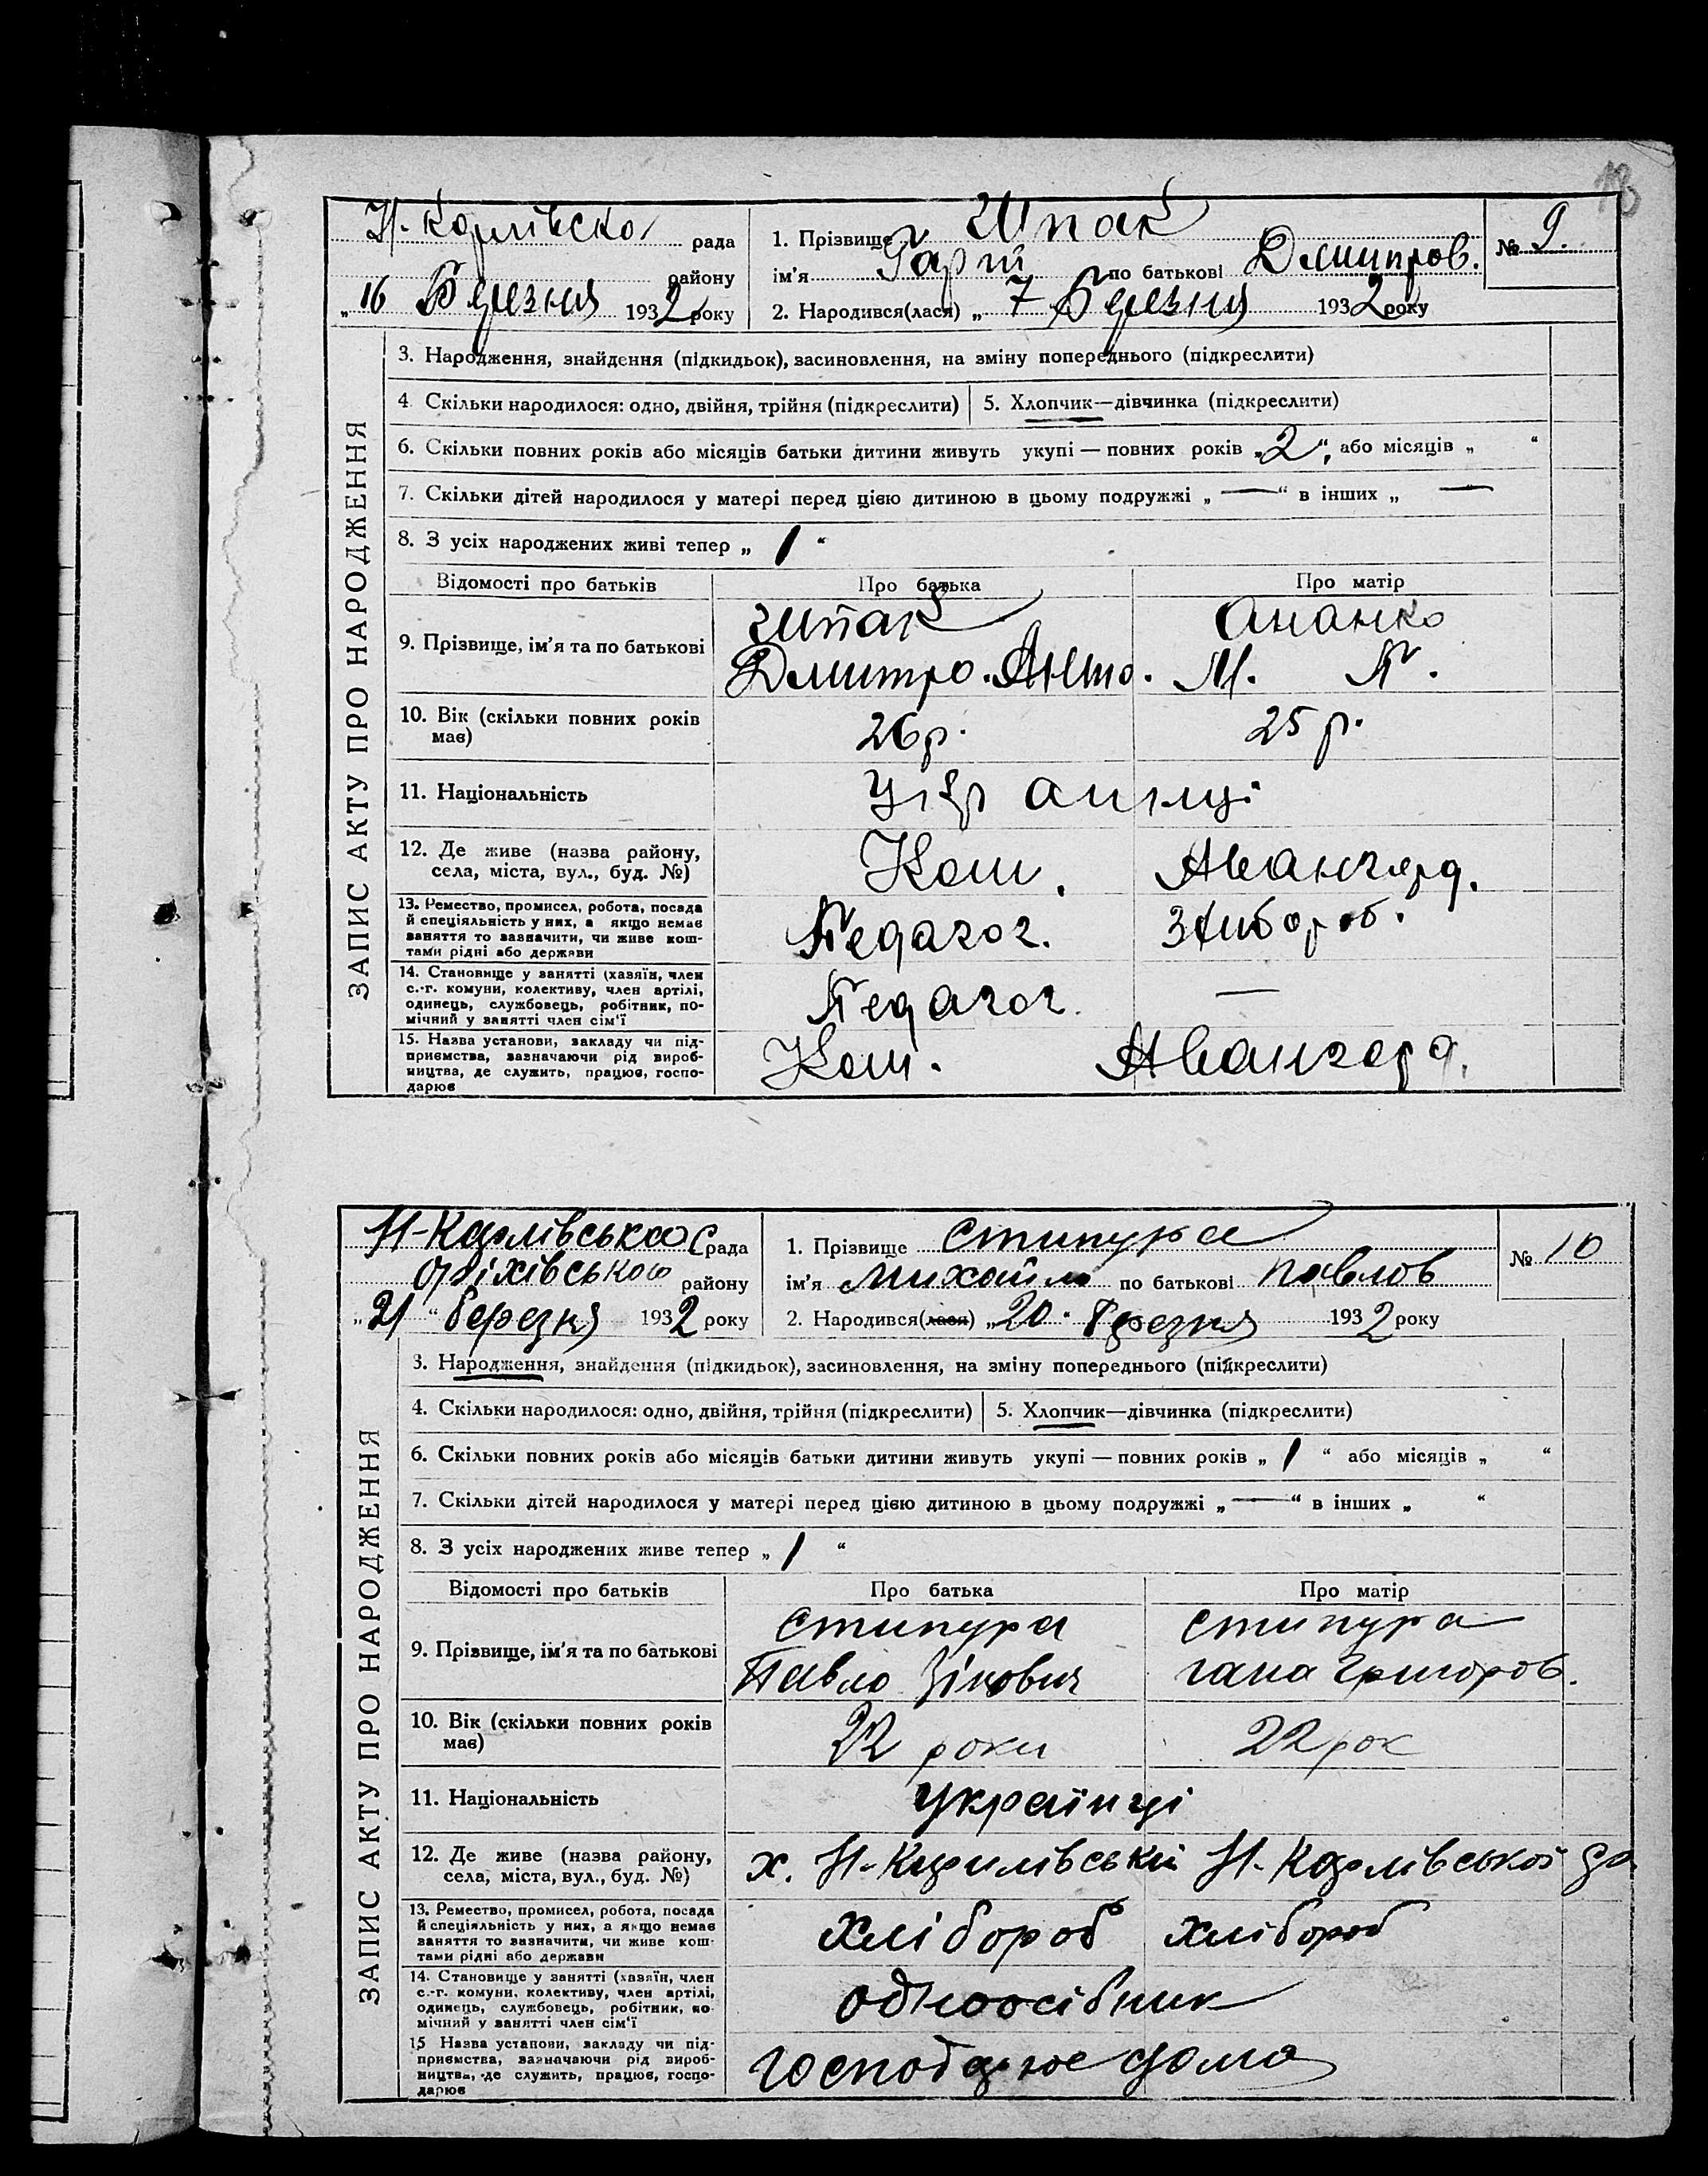 13
Н. Карлівсько рада
району
„16 Березня 1932 року
1. Прізвище Шпак
ім'я Гарій по батькові Дмитров.
2. Народився(лася) „ 7 Березня 1932 року
№ 9.
ЗАПИС АКТУ ПРО НАРОДЖЕННЯ
3. Народження, знайдення (підкидьок), засиновлення, на зміну попереднього (підкреслити)
4. Скільки народилося: одно, двійня, трійня (підкреслити) 5. Хлопчик—дівчинка (підкреслити)
6. Скільки повних років або місяців батьки дитини живуть укупі — повних років „2“, або місяців „ “
7. Скільки дітей народилося у матері перед цією дитиною в цьому подружжі „—“ в інших „ —“
8. З усіх народжених живі тепер „ 1 “
Відомості про батьків Про батька Про матір
9. Прізвище, ім'я та по батькові
Шпак
Дмитро. Анто.
Ананко
М. П.
10. Вік (скільки повних років має) 26 р. 25 р.
11. Національність Українці
12. Де живе (назва району, села, міста, вул., буд. №) Ком. Авангард.
13. Ремество, промисел, робота, посада й спеціяльність у них, а якщо немає заняття то зазначити, чи живе коштами рідні або держави
Педагог.
14. Становище у занятті (хазяїн, член с.-г. комуни, колективу, член артілі, одинець, службовець, робітник, помічний у занятті член сім'ї
Педагог. —
15. Назва установи, закладу чи підприємства, зазначаючи рід виробництва, де служить, працює, господарює
Ком. Авангард.
Н-Карлівською С рада
Оріхівською району
„21“ березня 1932 року
1. Прізвище Стипура
ім'я Михайло по батькові Павлов
2. Народився(лася) „20. Березня 1932 року
№ 10
ЗАПИС АКТУ ПРО НАРОДЖЕННЯ
3. Народження, знайдення (підкидьок), засиновлення, на зміну попереднього (підкреслити)
4. Скільки народилося: одно, двійня, трійня (підкреслити) 5. Хлопчик—дівчинка (підкреслити)
6. Скільки повних років або місяців батьки дитини живуть укупі — повних років „ 1 “ або місяців „ “
7. Скільки дітей народилося у матері перед цією дитиною в цьому подружжі „—“ в інших „ “
8. З усіх народжених живе тепер „ 1 “
Відомості про батьків Про батька Про матір
9. Прізвище, ім'я та по батькові
Стипура
Павло Зінович
Стипура
Гана Григоров.
10. Вік (скільки повних років має) 22 роки 22 рок
11. Національність Українці
12. Де живе (назва району, села, міста, вул., буд. №) х. Н-Кирилівській Н-Карлівської
13. Ремество, промисел, робота, посада й спеціяльність у них, а якщо немає заняття то зазначити, чи живе коштами рідні або держави
хлібороб хлібороб
14. Становище у занятті (хазяїн, член с.-г. комуни, колективу, член артілі, одинець, службовець, робітник, помічний у занятті член сім'ї
одноосібник
15 Назва установи, закладу чи підприємства, зазначаючи рід виробництва, де служить, працює, господарює
господарює дома